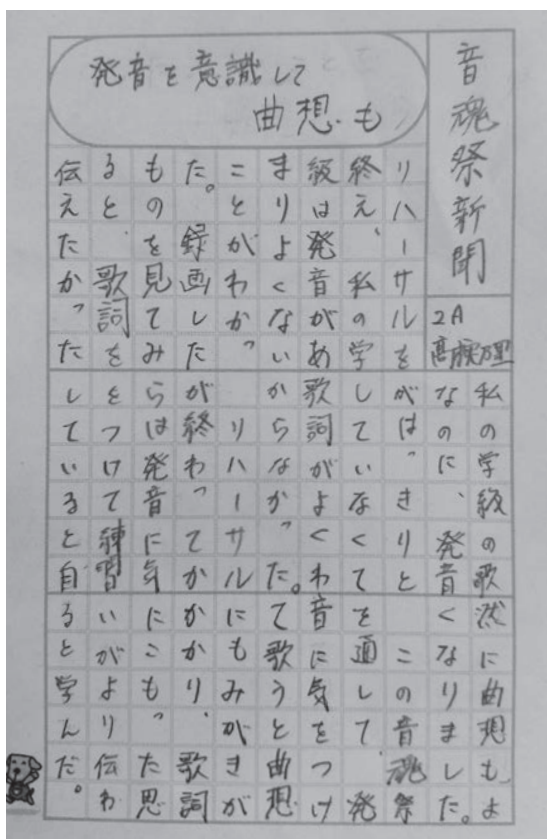 音魂祭新聞
2A
発音を意識して
曲想も
リハーサルを
終え、私の学
級は発音があ
まりよくない
ことがわかっ
た。録画した
ものを見てみ
ると、歌詞を
伝えたかった
私の学級の歌
なのに、発音
がはっきりと
していなくて
歌詞がよくわ
からなかった。
リハーサル
が終わってか
らは発音に気
をつけて練習
していると自
然に曲想も、よ
くなりました。
この音魂祭
を通して、発
音に気をつけ
て歌うと曲想
にもみがきが
かかり、歌詞
にこもった思
いがより伝わ
ると学んだ。